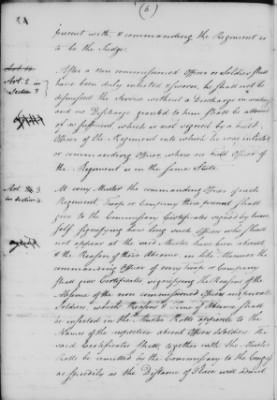 (6)
present with & commanding the Regiment is
to be the Judge.
Art. 2 in
Section 3
After a non commissioned Officer or Soldier shall
have been duly inlisted & sworn, he shall not be
dismissed the Service without a Discharge in writing
and no Discharge granted to him shall be allowed
of as sufficient which is not signed by a field
Officer of the Regiment into which he was inlisted
or commanding Officer, where no field Officer of
the Regiment is in the same State.
Art. 3
in Section
At every Muster the commanding Officer of each
Regiment, Troop or Company there present shall
give to the Commissary Certificates signed by him
self signifying how long such Officers who shall
not appear at the said Muster have been absent
& the Reason of their Absence, in like Manner the
commanding Officer of every Troop or Company
shall give Certificates signifying the Reasons of the
Absence of the non commissioned Officers and private
Soldiers, which Reasons & Time of Absence shall
be inserted in the Muster Rolls opposite to the
Names of the respective absent Officers & Soldiers, the
said Certificates shall, together with the Muster
Rolls be remitted by the Commissary to the Congress
as speedily as the Distance of Place will admit